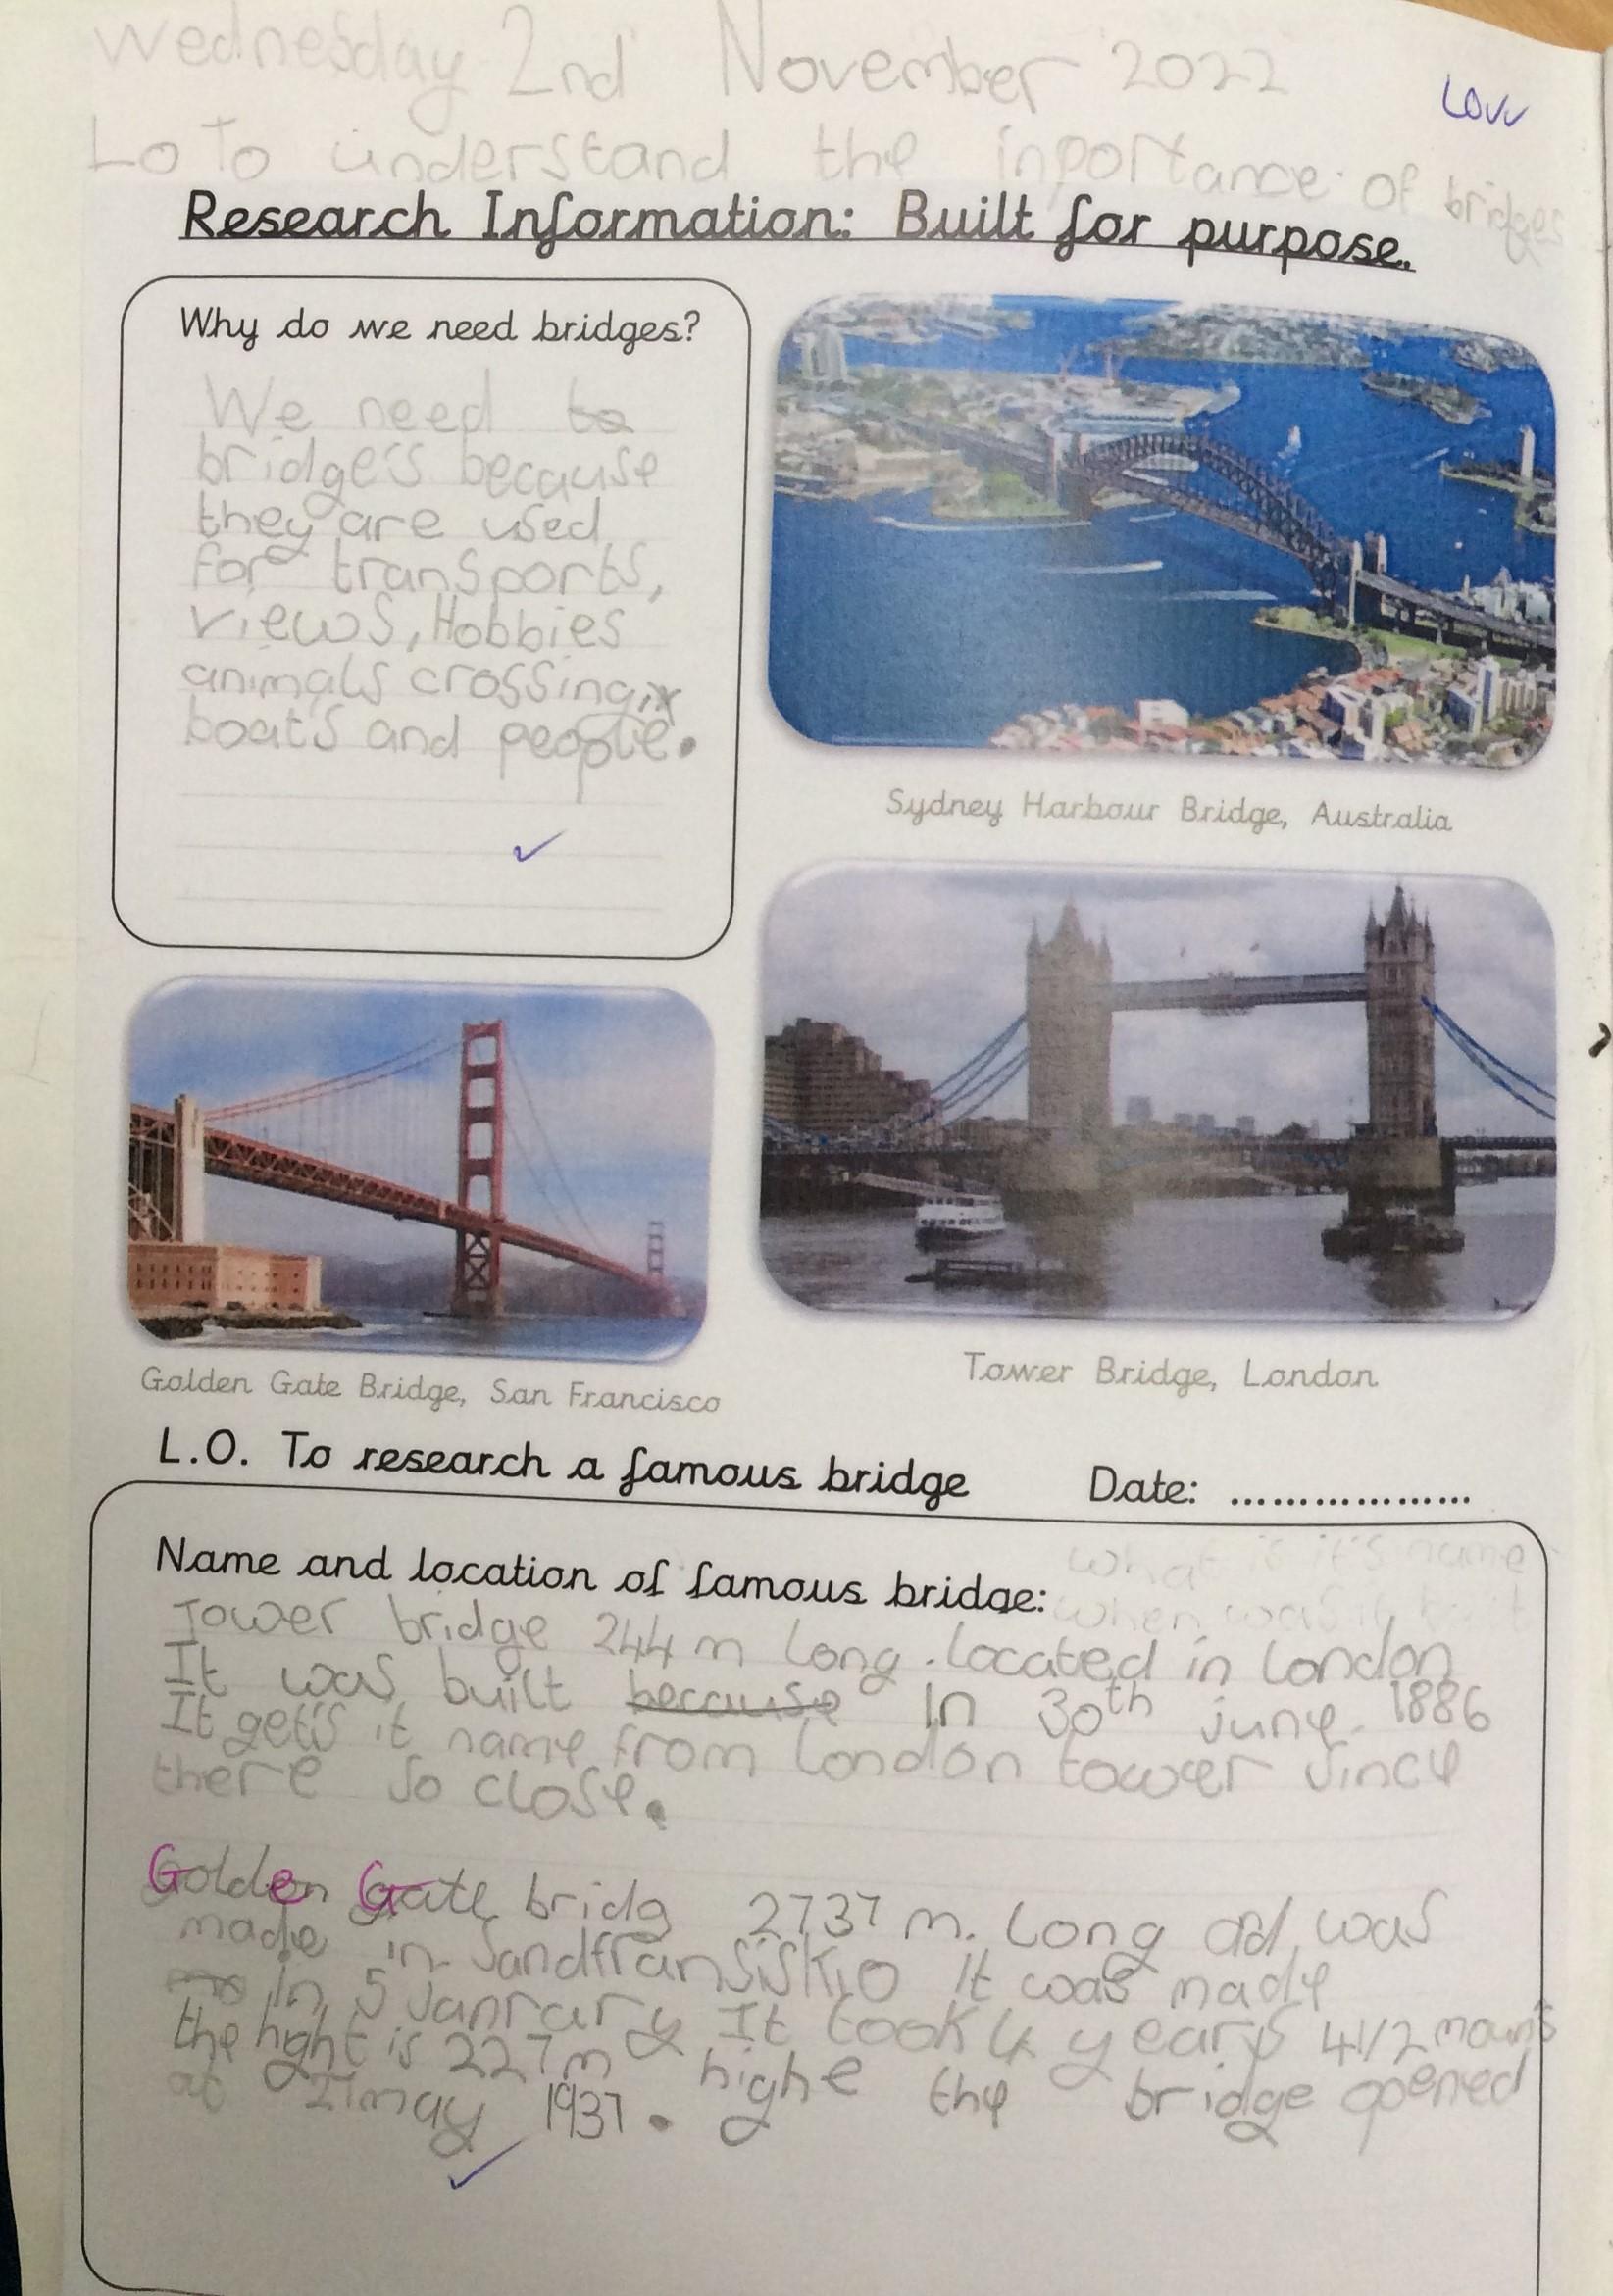 Wednesday 2nd November 2022
Lo To understand the inportance of bridges
Research Information: Built for purpose.
Why do we need bridges?
We need to
bridge's because
they are used
for transports,
views, Hobbies
animals crossing,
boats and people.
Sydney Harbour Bridge, Australia
Tower Bridge, London
Golden Gate Bridge, San Francisco
L.O. To research a famous bridge Date: ..................
what is it's name
Name and location of famous bridge:
when was it built
Tower bridge 244 m long. located in london
It was built because In 30th june. 1886
It gets it name from london tower since
there so close.
Golden Gate bridg 2737 m. Long ad was
made in Sandfransiskio It was made
In 5 Janrary It took 4 years 4 1/2 mounts
the hght is 227 m highe the bridge opened
at 27 may 1937.